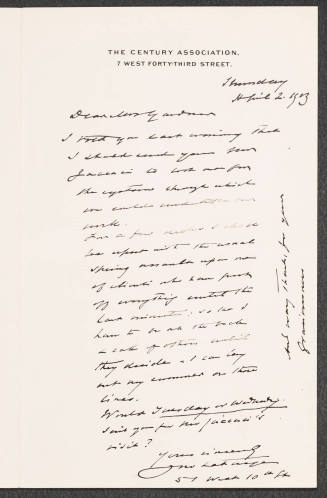 THE CENTURY ASSOCIATION,
7 WEST FORTY-THIRD STREET.
Thursday
April 2. 1903
Dear Mrs Gardner
I told you last evening that
I should send you
to look out for
the through which
we could
work.
For a few I shall
be upset with the usual
Spring upon
of who have put
off everything until the
last minute: so as I
have to be at the beck
& call of others until
they decide & I can lay
out my summer on those
lines.
Would Tuesday or Wednesday
suit you for this
visit?
Yours sincerely
51 West 10th St
And many thanks for your
graciousness